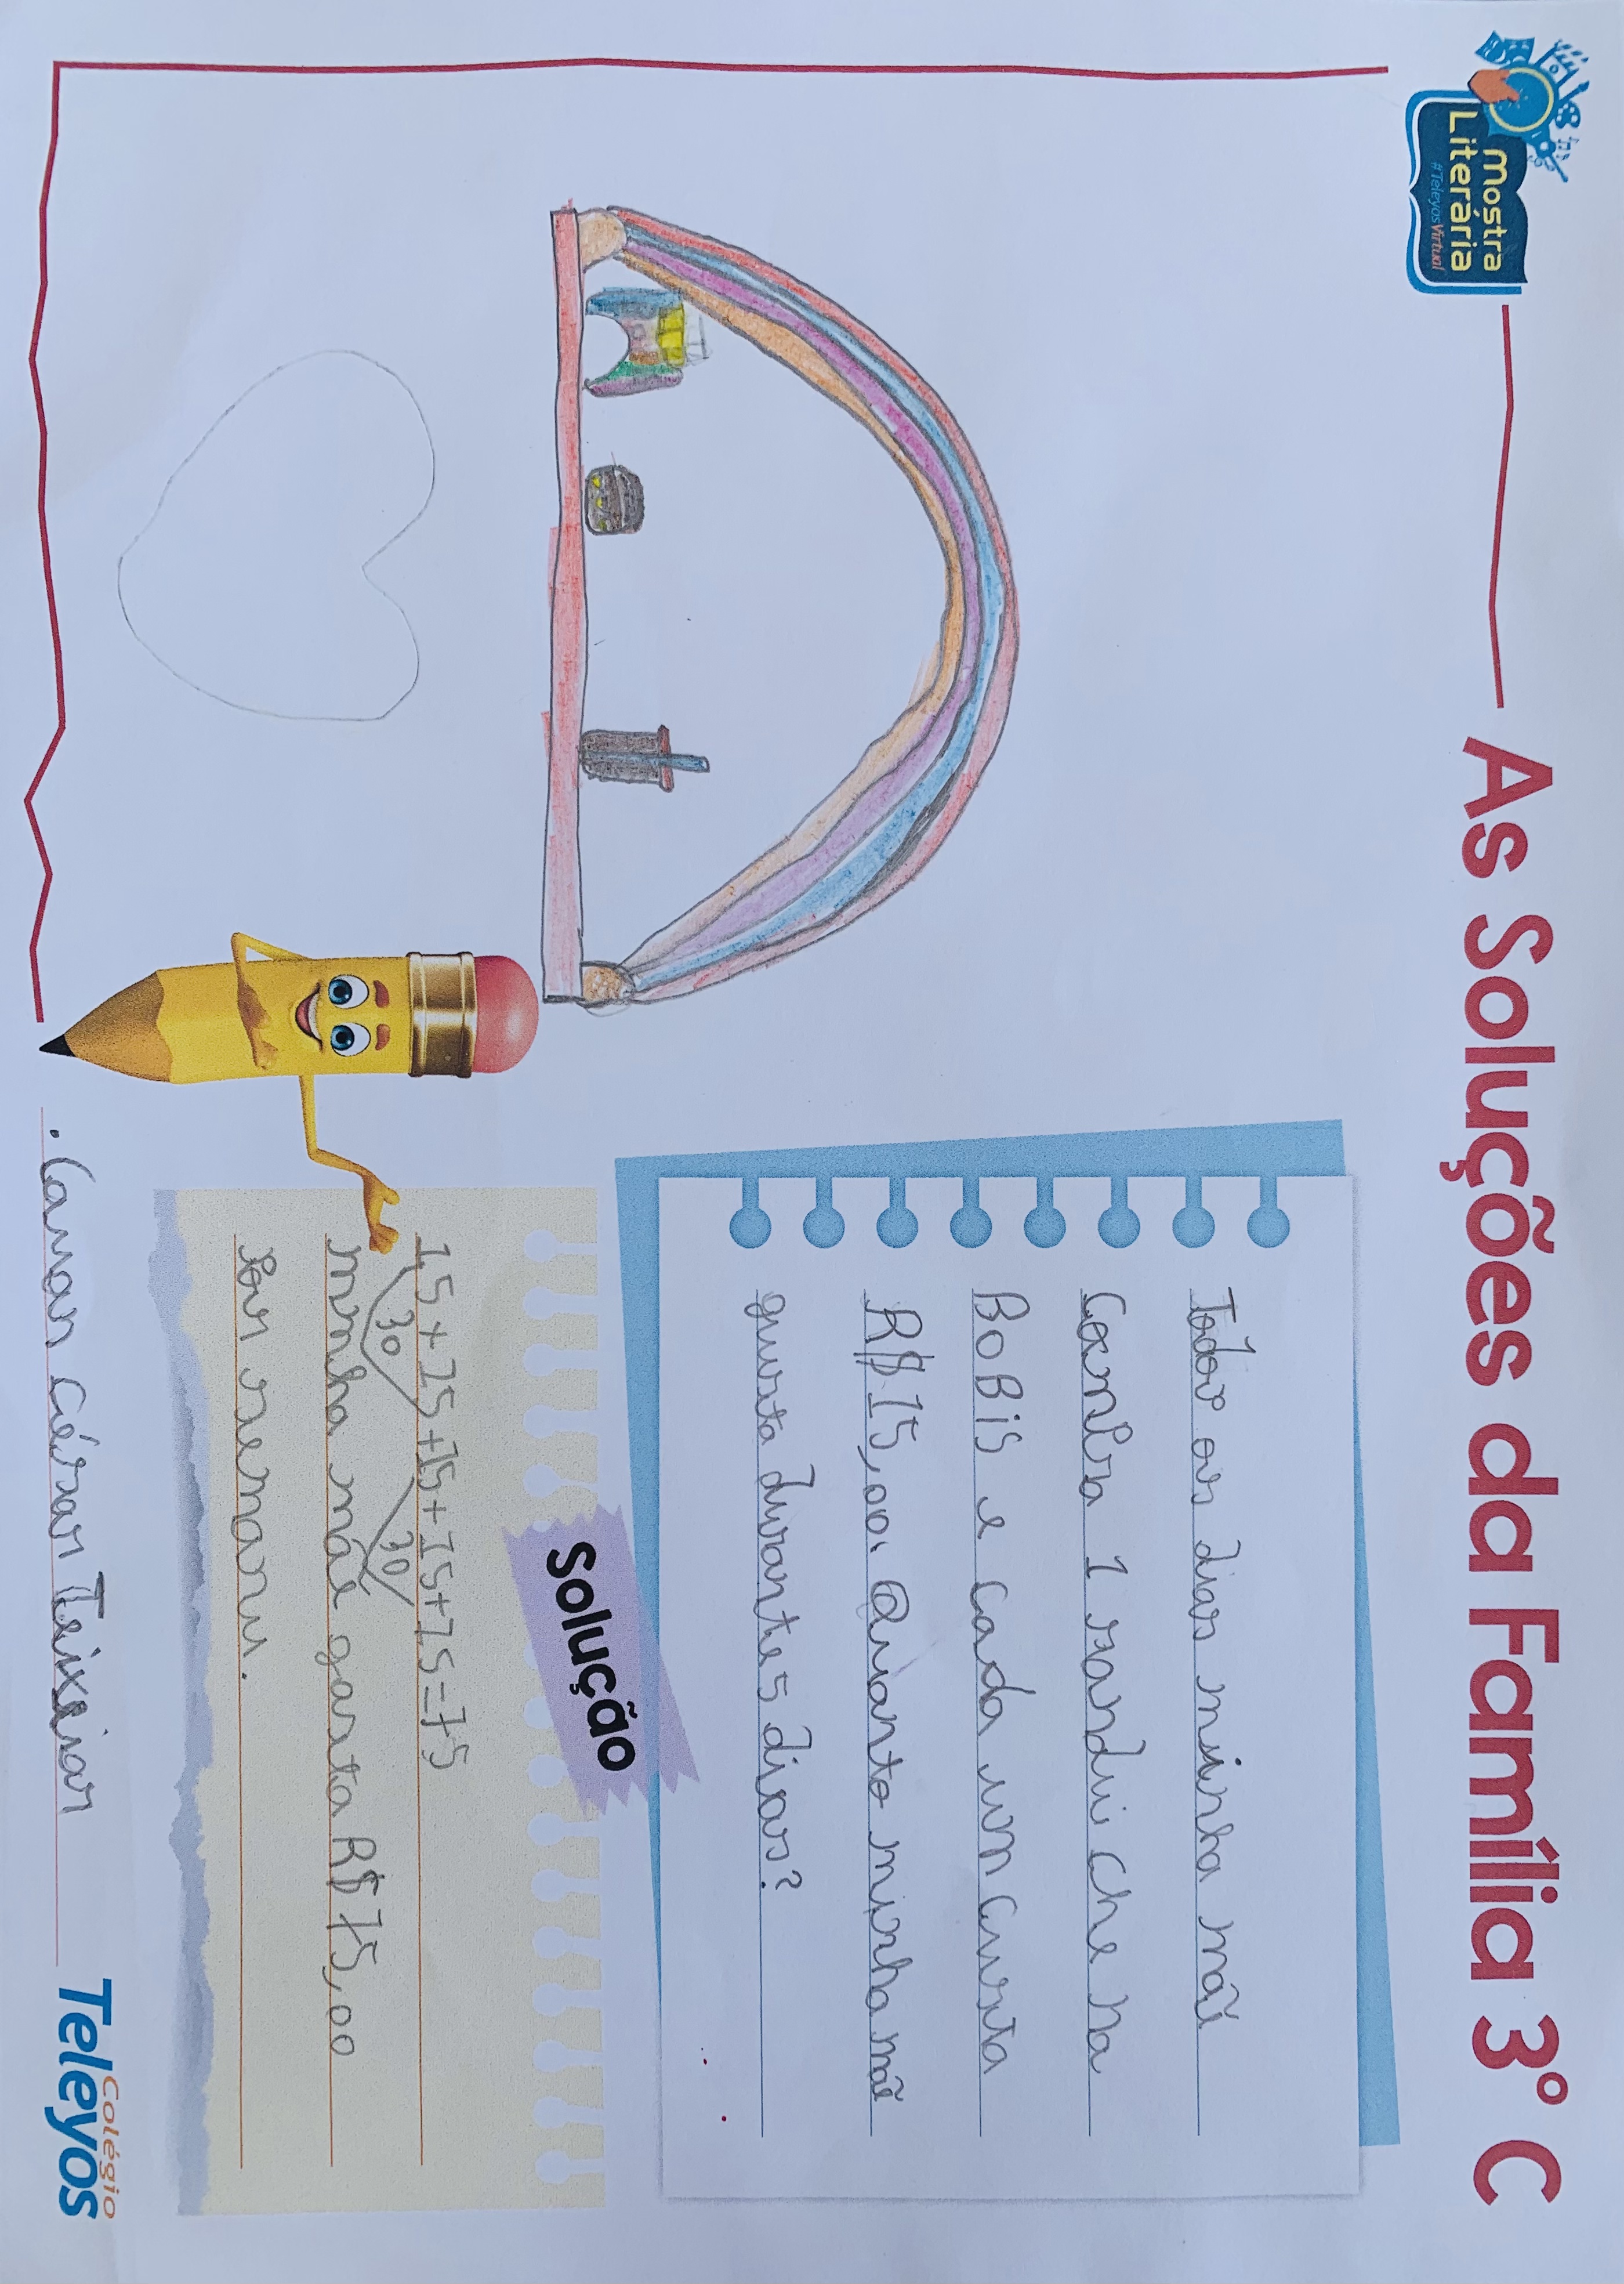 mostra
Literária
#TeleyosVirtual
As Soluções da Família 3° C
Todos os dias minha mãe
Compra 1 sandui che na
BoBis e cada um custa
R$ 15,00. Quanto minha mãe
gasta durante 5 dias?
Solução
15+15+15+15+15=75
30 30
minha mãe gasta R$ 75,00
por semana.
Cauan César Teixeira
Colégio
Teleyos